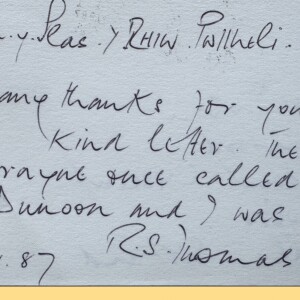 Y Rhiw. Pwllheli.
any thanks for you
kind letter. The
once called
Dunoon and I was
R.S. Thomas
.87